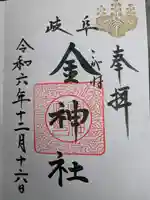 奉拝
岐阜
金神社
令和六年十二月十六日